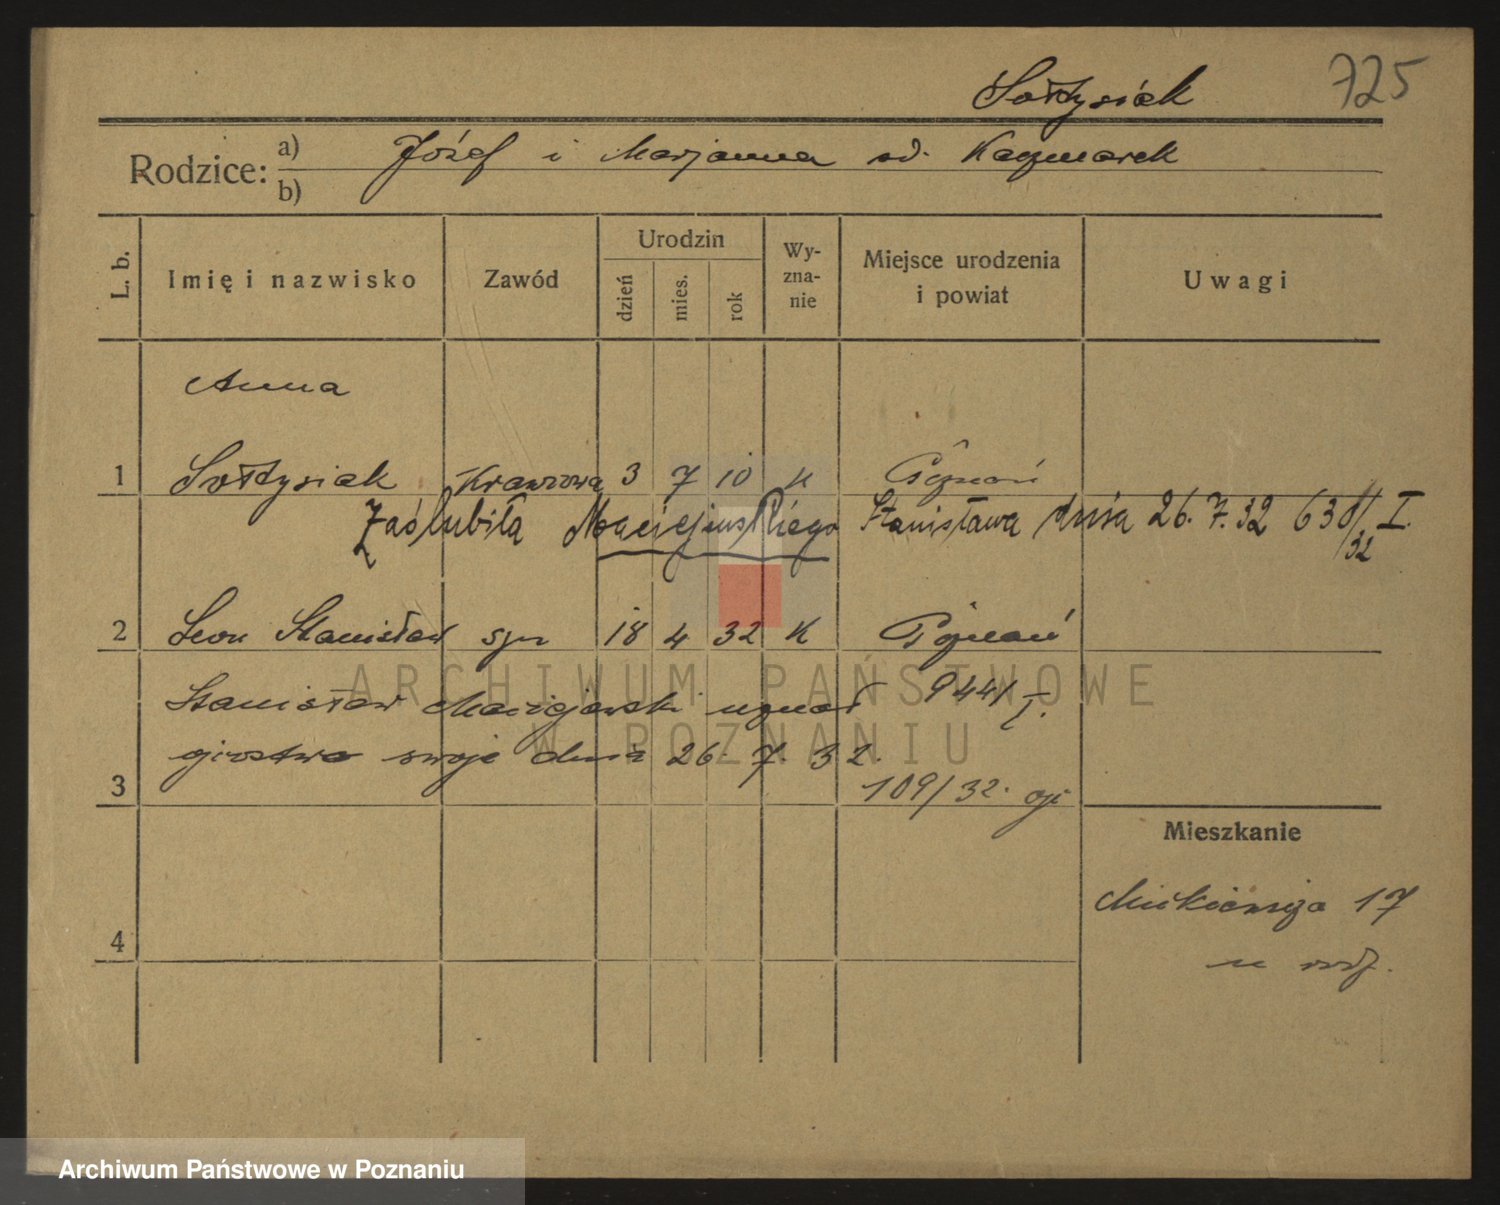 Sołtysiak 725
Rodzice: a) Józef i Marjanna sd. Kaczmarek
b)
L. b. Imię i nazwisko Zawód Urodzin dzień mies. rok Wy-zna-nie Miejsce urodzenia i powiat Uwagi
Anna
1 Sołtysiak Krawcowa 3 7 10 K Poznań
Zaślubiła Maciejewskiego Stanisława dnia 26. 7. 32 638/32 I.
2 Leon Stanisław syn 18 4 32 K Poznań
ARCHIWUM PAŃSTWOWE
Stanisław Maciejewski uznał 944/I.
W POZNANIU
ojcostwo swoje dnia 26. 7. 32.
3 109/32.
Mieszkanie
Mickiewicza 17
4
Archiwum Państwowe w Poznaniu